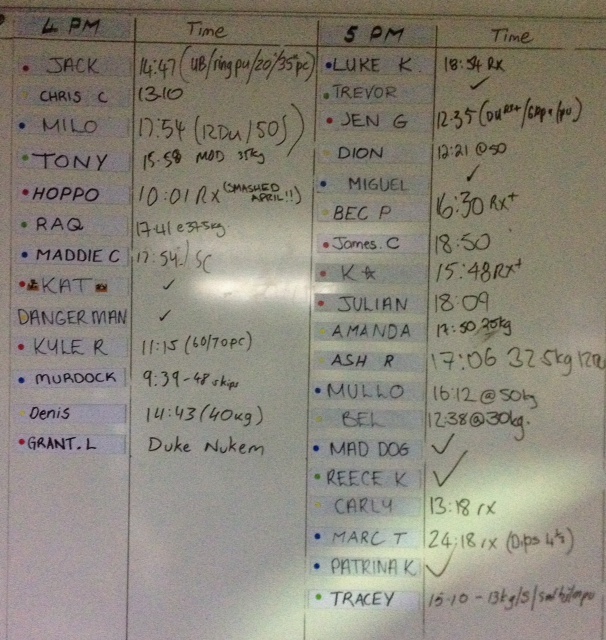 4 PM Time
JACK 14:47 (UB/ring pu/20"/35pc)
CHRIS C 13:10
MILO 17:54 (12Du/50S)
TONY 15:58 MOD 35kg
HOPPO 10:01 Rx (SMASHED APRIL!!)
RAQ 17:41 @37.5kg
MADDIE C 17:54 / SC
KAT ✓
DANGERMAN ✓
KYLE R 11:15 (60/70pc)
MURDOCK 9:39 - 48 skips
Denis 14:43 (40kg)
GRANT.L Duke Nukem
5 PM Time
LUKE K 18:54 Rx
TREVOR ✓
JEN G 12:35
DION 12:21 @50
MIGUEL ✓
BEC P 16:30 Rx+
James.C 18:50
K☆ 15:48 Rx+
JULIAN 18:09
AMANDA 17:50, 25kg
ASH R 17:06 32.5kg
MULLO 16:12 @50kg
BEL 12:38 @30kg.
MAD DOG ✓
REECE K ✓
CARLY 13:18 rx
MARC T 24:18 rx (Dips 4½)
PATRINA K ✓
TRACEY 15:10 - 13kg/S/